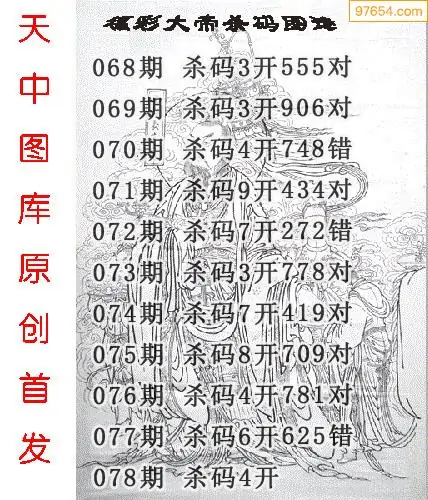 97654.com
福彩大帝杀码图迷
天中图库原创首发
068期 杀码3开555对
069期 杀码3开906对
070期 杀码4开748错
071期 杀码9开434对
072期 杀码7开272错
073期 杀码3开778对
074期 杀码7开419对
075期 杀码8开709对
076期 杀码4开781对
077期 杀码6开625错
078期 杀码4开